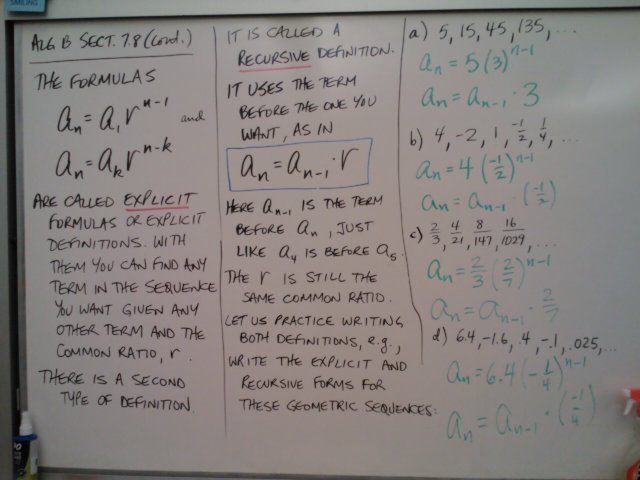 SMILING
ALG B SECT. 7.8 (Cont.)
THE FORMULAS
aₙ = a₁rⁿ⁻¹ and
aₙ = aₖrⁿ⁻ᵏ
ARE CALLED EXPLICIT
FORMULAS OR EXPLICIT
DEFINITIONS. WITH
THEM YOU CAN FIND ANY
TERM IN THE SEQUENCE
YOU WANT GIVEN ANY
OTHER TERM AND THE
COMMON RATIO, r.
THERE IS A SECOND
TYPE OF DEFINITION.
IT IS CALLED A
RECURSIVE DEFINITION.
IT USES THE TERM
BEFORE THE ONE YOU
WANT, AS IN
aₙ = aₙ₋₁ · r
HERE aₙ₋₁ IS THE TERM
BEFORE aₙ, JUST
LIKE a₄ IS BEFORE a₅.
THE r IS STILL THE
SAME COMMON RATIO.
LET US PRACTICE WRITING
BOTH DEFINITIONS, e.g.,
WRITE THE EXPLICIT AND
RECURSIVE FORMS FOR
THESE GEOMETRIC SEQUENCES:
a) 5, 15, 45, 135, ...
aₙ = 5(3)ⁿ⁻¹
aₙ = aₙ₋₁ · 3
b) 4, -2, 1, -1/2, 1/4, ...
aₙ = 4(-1/2)ⁿ⁻¹
aₙ = aₙ₋₁ · (-1/2)
c) 2/3, 4/21, 8/147, 16/1029, ...
aₙ = 2/3(2/7)ⁿ⁻¹
aₙ = aₙ₋₁ · 2/7
d) 6.4, -1.6, .4, -.1, .025, ...
aₙ = 6.4(-1/4)ⁿ⁻¹
aₙ = aₙ₋₁ · (-1/4)